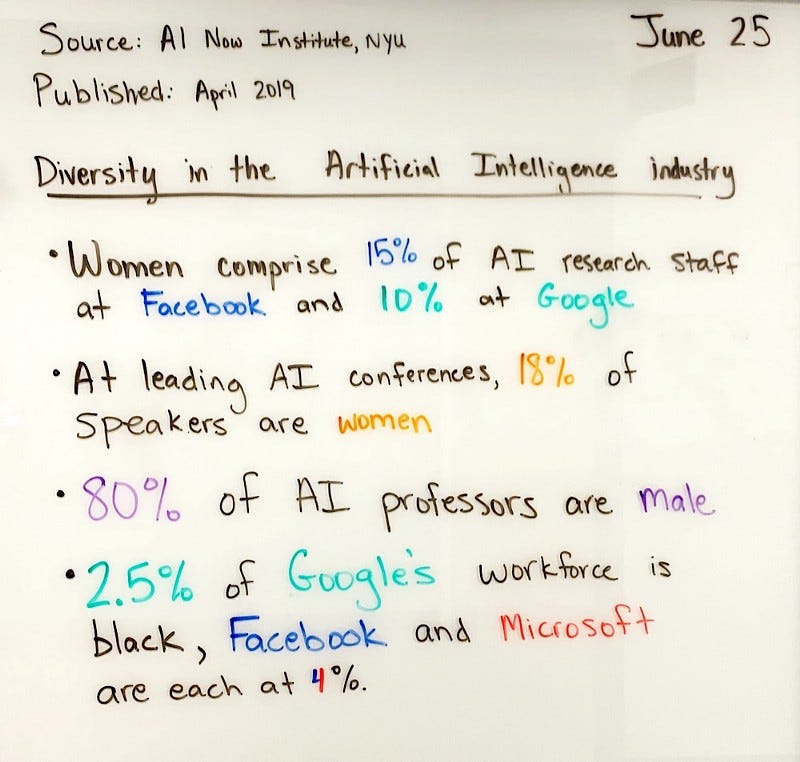 Source: AI Now Institute, NYU
June 25
Published: April 2019
Diversity in the Artificial Intelligence industry
• Women comprise 15% of AI research staff
at Facebook and 10% at Google
• At leading AI conferences, 18% of
speakers are women
• 80% of AI professors are male
• 2.5% of Google's workforce is
black, Facebook and Microsoft
are each at 4%.